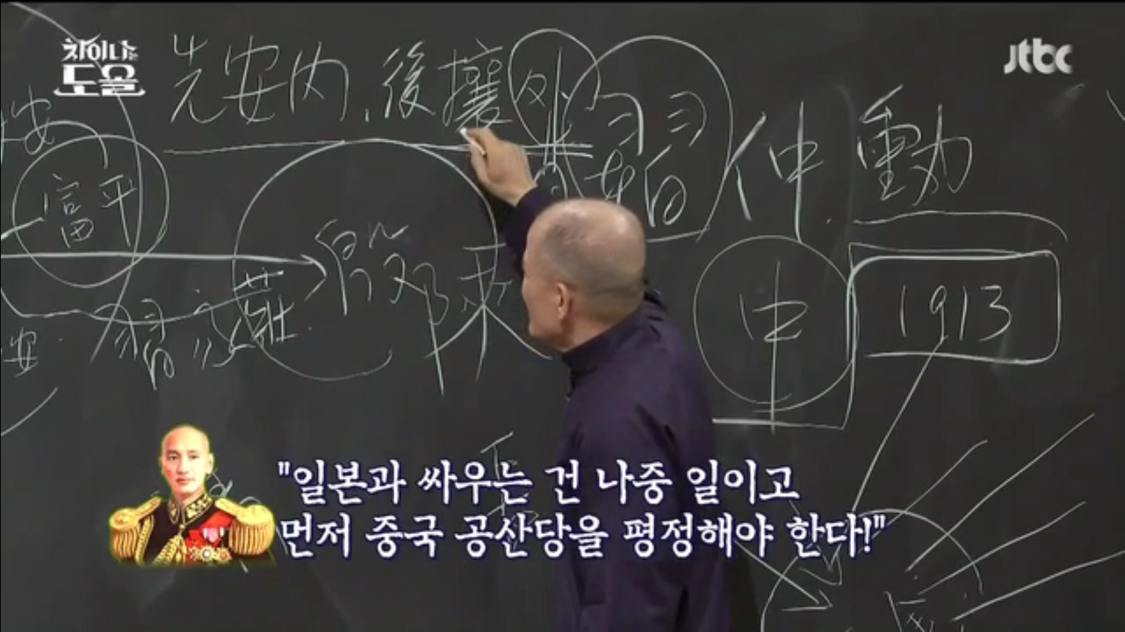 차이나는
도올
jtbc
先安內, 後攘外
習
仲
動
安
富平
中
1913
安
"일본과 싸우는 건 나중 일이고
먼저 중국 공산당을 평정해야 한다!"